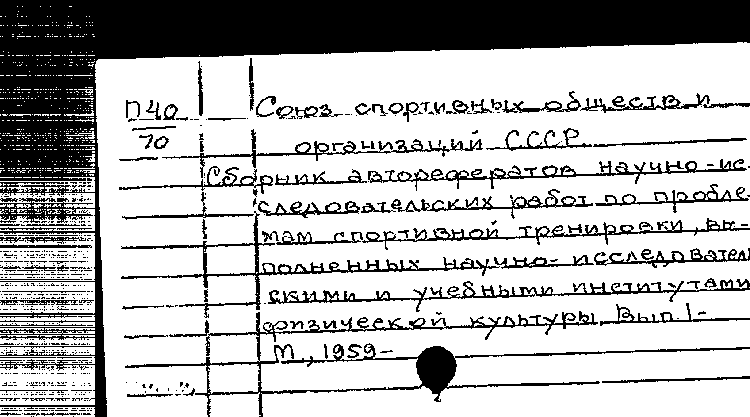 П40 Союз спортивных обществ и
70 организаций СССР.
Сборник авторефератов научно-ис-
следовательских работ по пробле-
мам спортивной тренировки, вы-
полненных научно-исследователь
скими и учебными институтами
физической культуры. Вып. 1-
М., 1959-